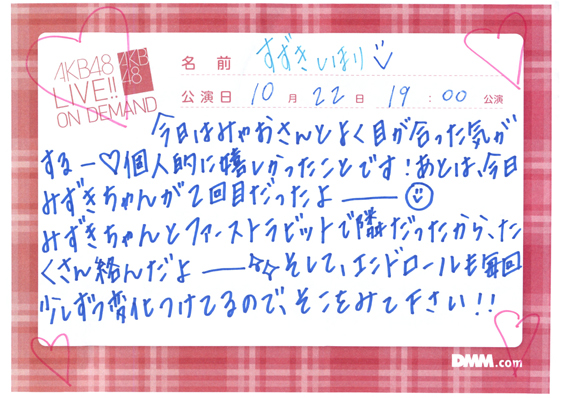 AKB48
LIVE!!
ON DEMAND
AKB
48
名前 すずきしほり
公演日 10月22日 19:00公演
今日はみゃおさんとよく目が合った気が
するー♡個人的に嬉しかったことです!あとは、今日
みずきちゃんが2回目だったよ——☺
みずきちゃんとファーストラビットで隣だったから、た
くさん絡んだよ——☆☆そして、エンドロールも毎回
少しずつ変化つけてるので、そこをみて下さい!!
DMM.com